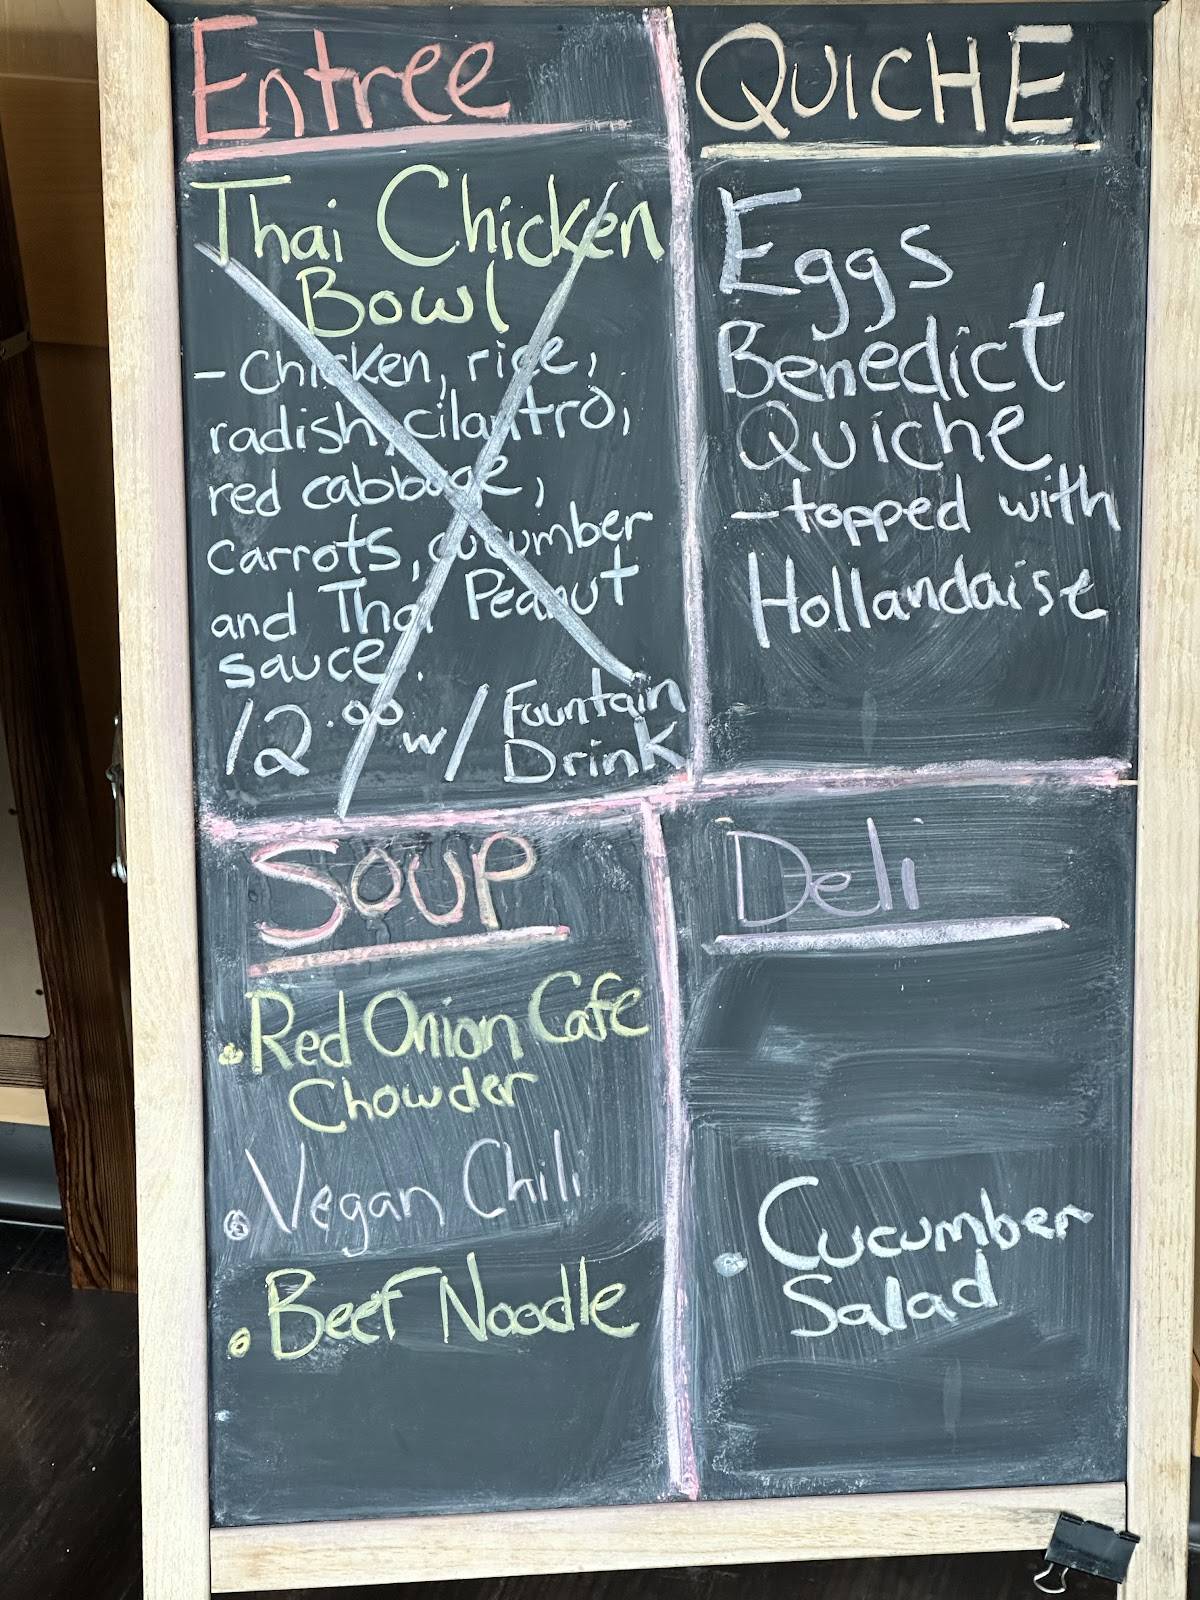 Entree
Thai Chicken
Bowl
- Chicken, rice,
radish, cilantro,
red cabbage,
carrots, cucumber
and Thai Peanut
sauce.
12.99 w/ Fountain
Drink
QUICHE
Eggs
Benedict
Quiche
- topped with
Hollandaise
SOUP
• Red Onion Cafe
Chowder
• Vegan Chili
• Beef Noodle
Deli
• Cucumber
Salad